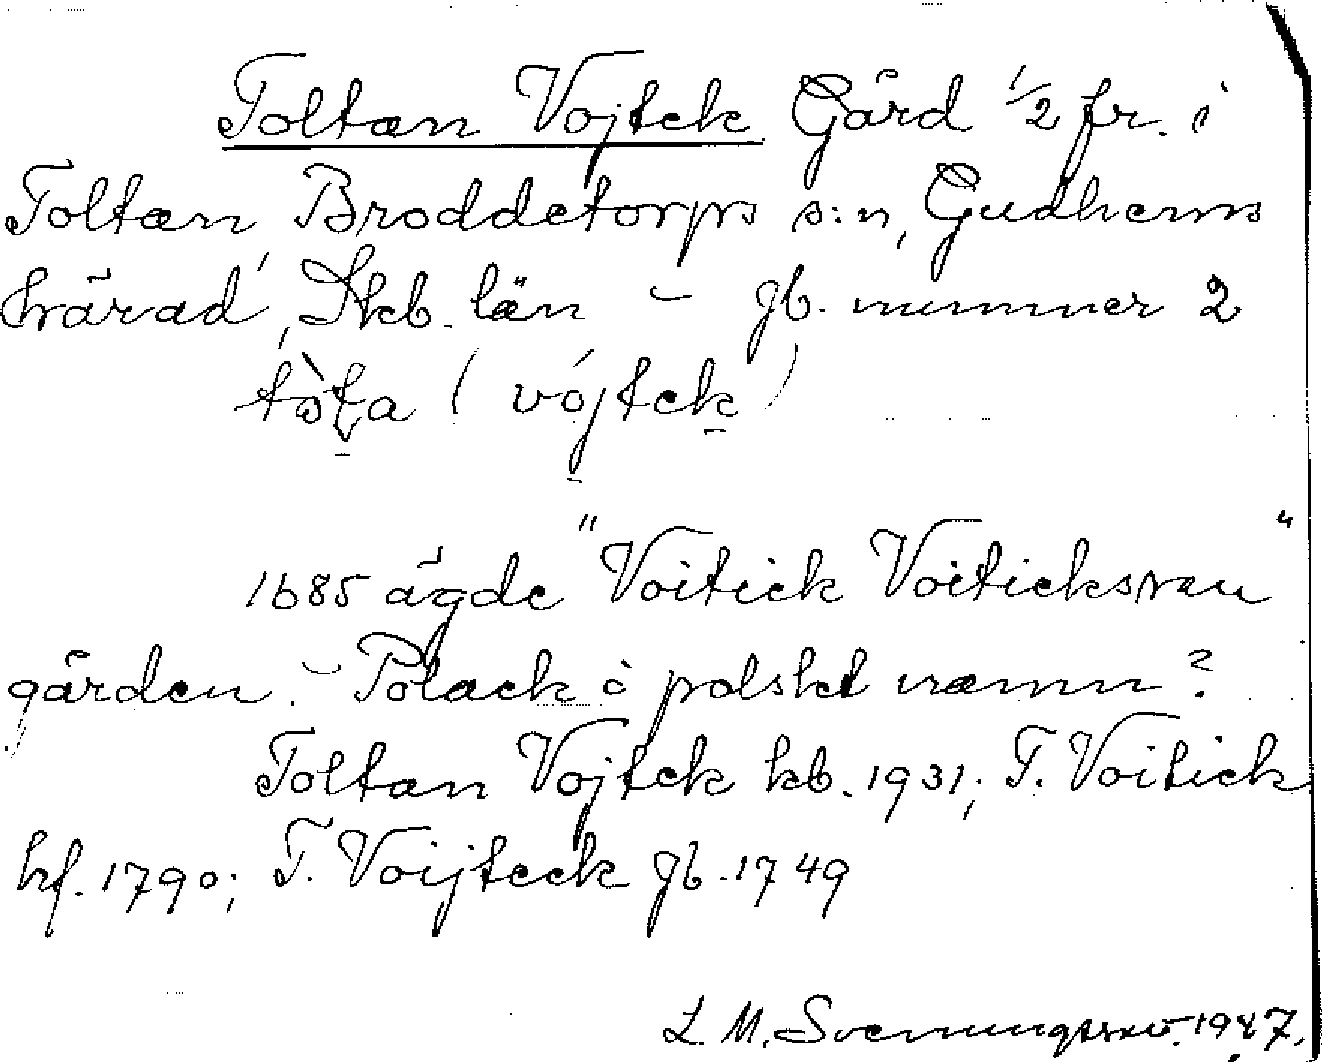 Toltan Vojtek. Gård 1/2 fr. i
Toltan, Broddetorps s:n, Gudhems
härad, Skb. län – gb. nummer 2
(vójtek)
1685 ägde "Voitick Voiticksrau"
gården. – Polack o polskt namn?
Toltan Vojtek kb. 1931; T. Voitick
hf. 1790; T. Voijteck gb. 1749
L M. Svenungsson. 1947.